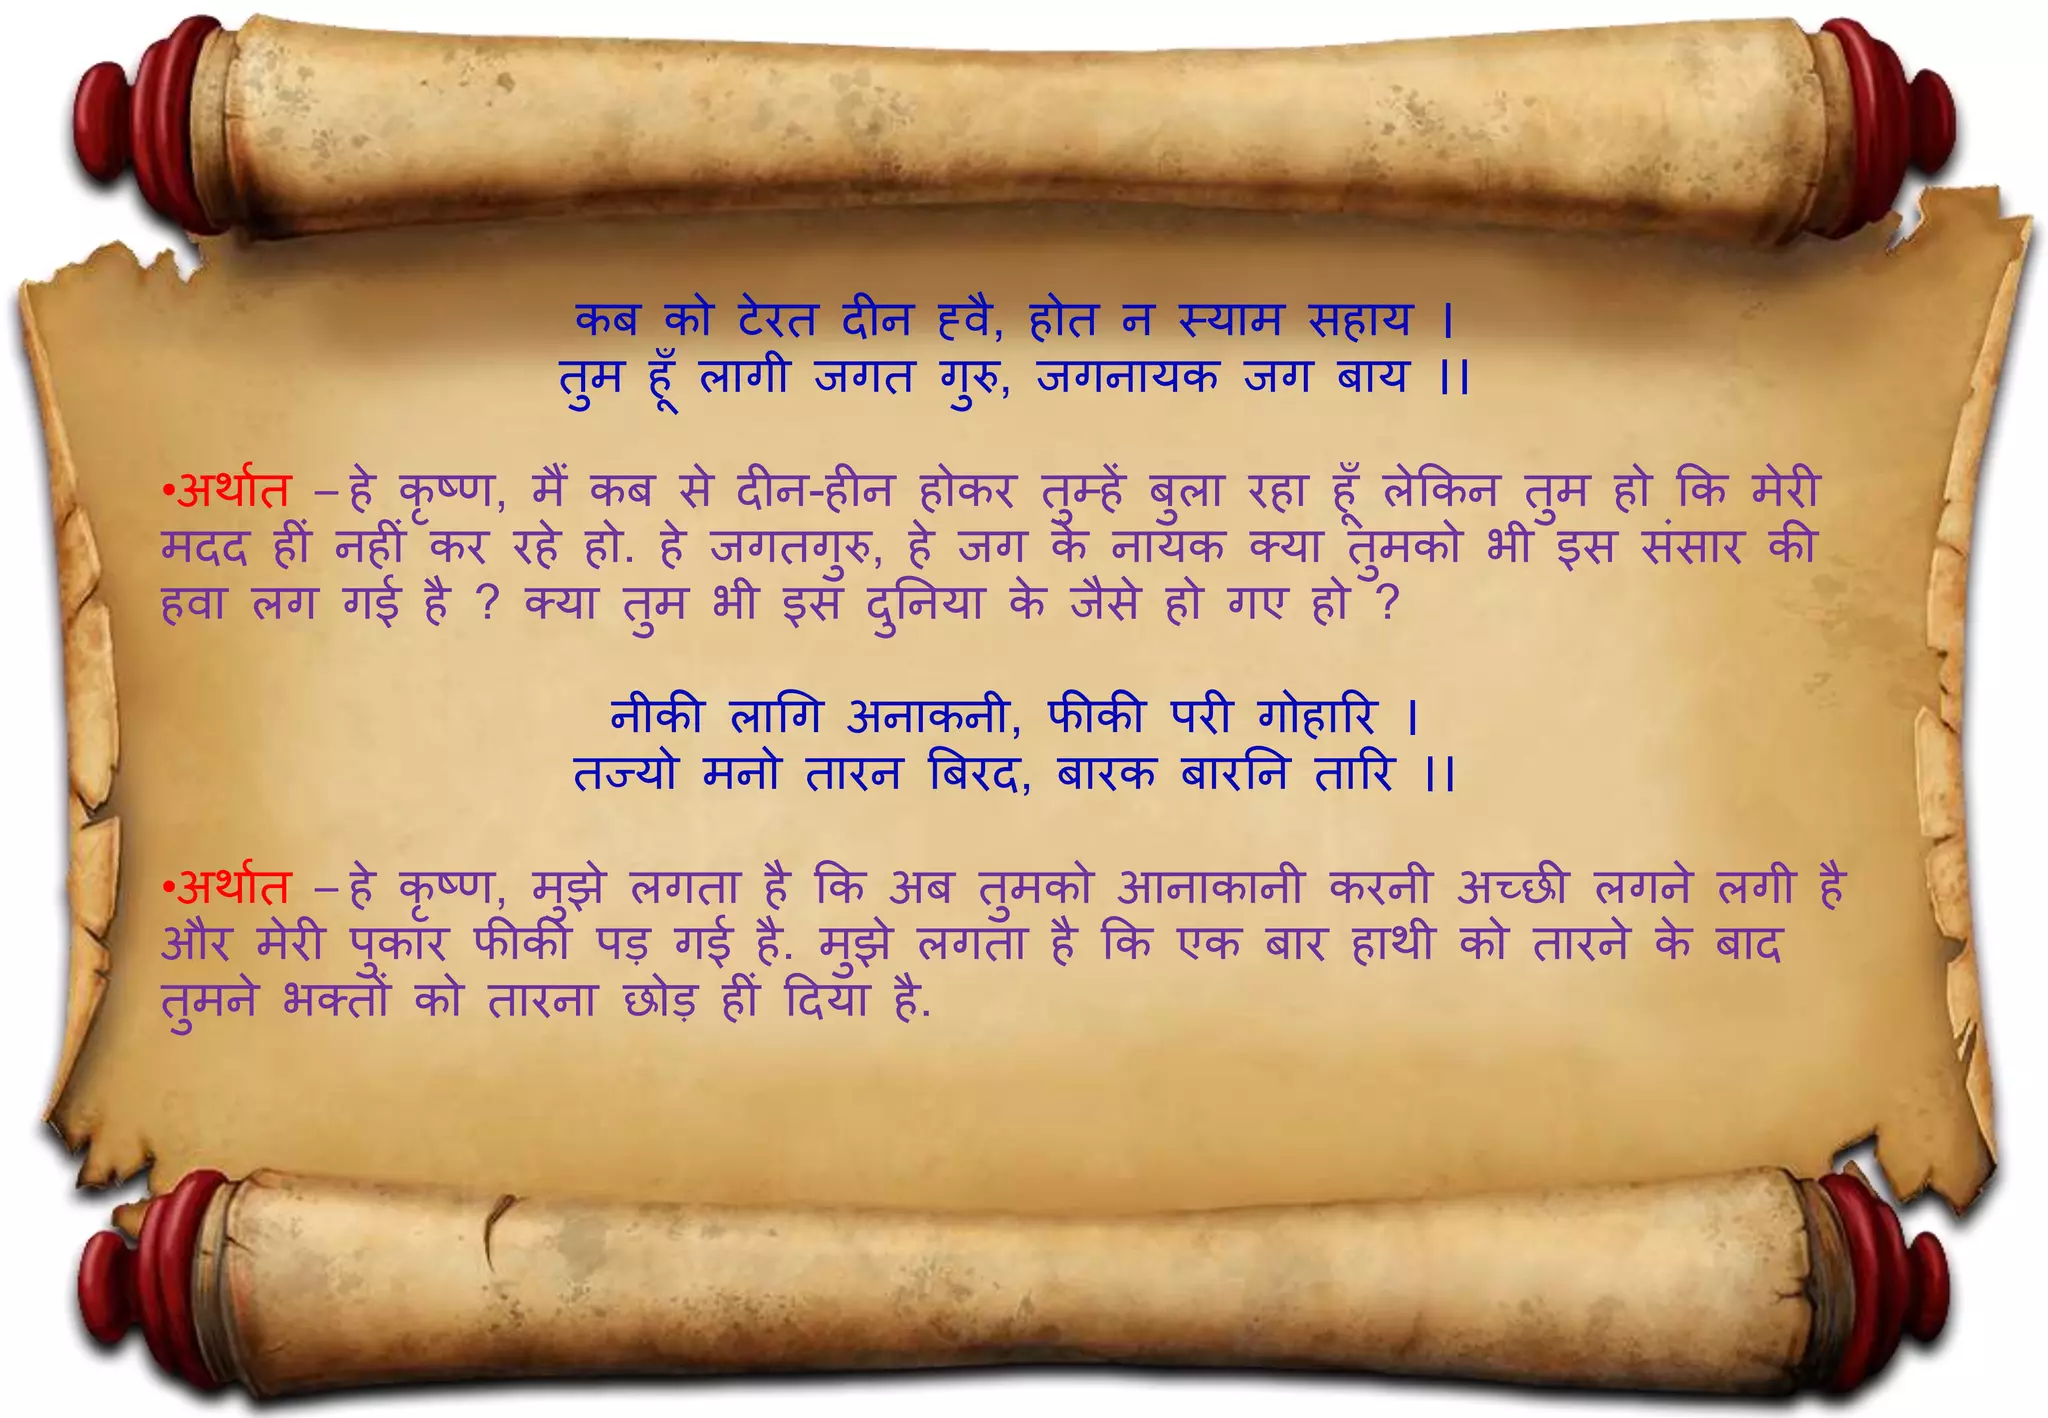 कब को टेरत दीन ह्वै, होत न स्याम सहाय ।
तुम हूँ लागी जगत गुरु, जगनायक जग बाय ।।
•अर्थात – हे कृष्ण, मैं कब से दीन-हीन होकर तुम्हें बुला रहा हूँ लेकिन तुम हो कि मेरी
मदद हीं नहीं कर रहे हो. हे जगतगुरु, हे जग के नायक क्या तुमको भी इस संसार की
हवा लग गई है ? क्या तुम भी इस दुनिया के जैसे हो गए हो ?
नीकी लागि अनाकनी, फीकी परी गोहारि ।
तज्यो मनो तारन बिरद, बारक बारनि तारि ।।
•अर्थात – हे कृष्ण, मुझे लगता है कि अब तुमको आनाकानी करनी अच्छी लगने लगी है
और मेरी पुकार फीकी पड़ गई है. मुझे लगता है कि एक बार हाथी को तारने के बाद
तुमने भक्तों को तारना छोड़ हीं दिया है.